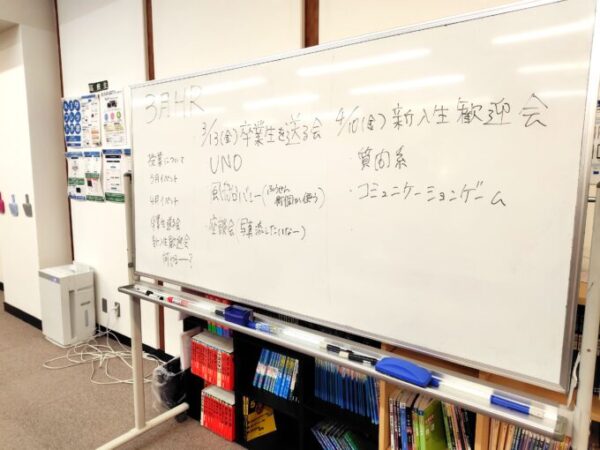 3月HR
授業について
3月イベント
4月イベント
卒業生送る会
新入生歓迎会
3/13(金) 卒業生を送る会
UNO
風船バレー(
座談会(写真流したいなー)
4/10(金) 新入生歓迎会
・質問系
・コミュニケーションゲーム